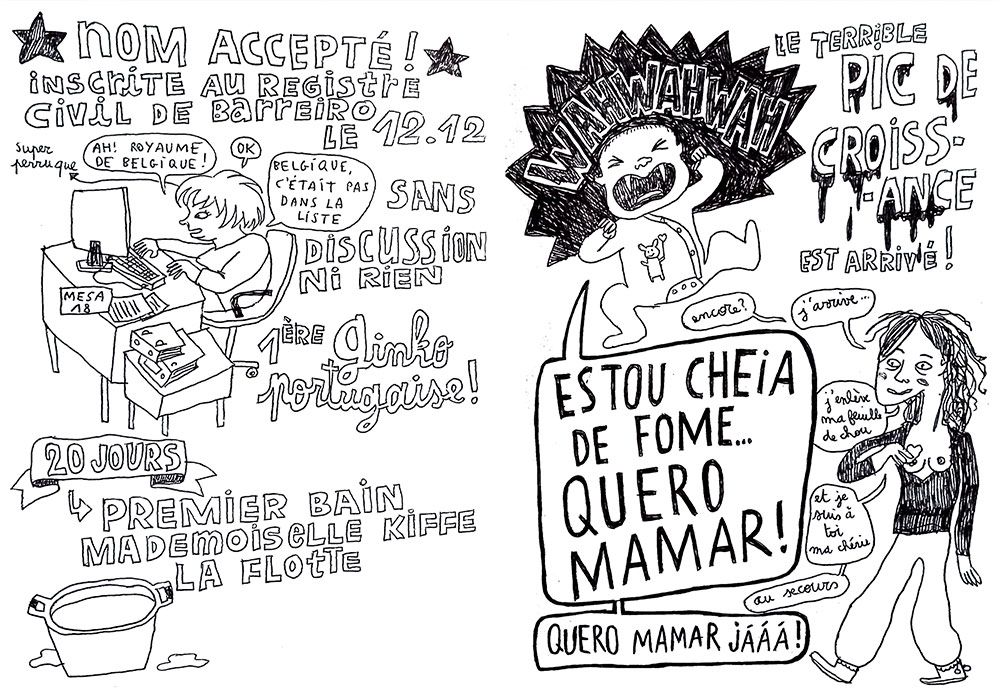 NOM ACCEPTÉ!
INSCRITE AU REGISTRE
CIVIL DE BARREIRO
LE 12.12
Super
perruque
AH! ROYAUME
DE BELGIQUE!
OK
BELGIQUE,
C'ÉTAIT PAS
DANS LA
LISTE
SANS
DISCUSSION
NI RIEN
MESA
18
1ÈRE Ginko
portugaise!
20 JOURS
PREMIER BAIN
MADEMOISELLE KIFFE
LA FLOTTE
WAHWAHWAH
LE TERRIBLE
PIC DE
CROISS-
-ANCE
EST ARRIVÉ!
encore?
j'arrive...
ESTOU CHEIA
DE FOME...
QUERO
MAMAR!
QUERO MAMAR JÁÁÁ!
j'enlève
ma feuille
de chou
et je
suis à
toi
ma chérie
au secours